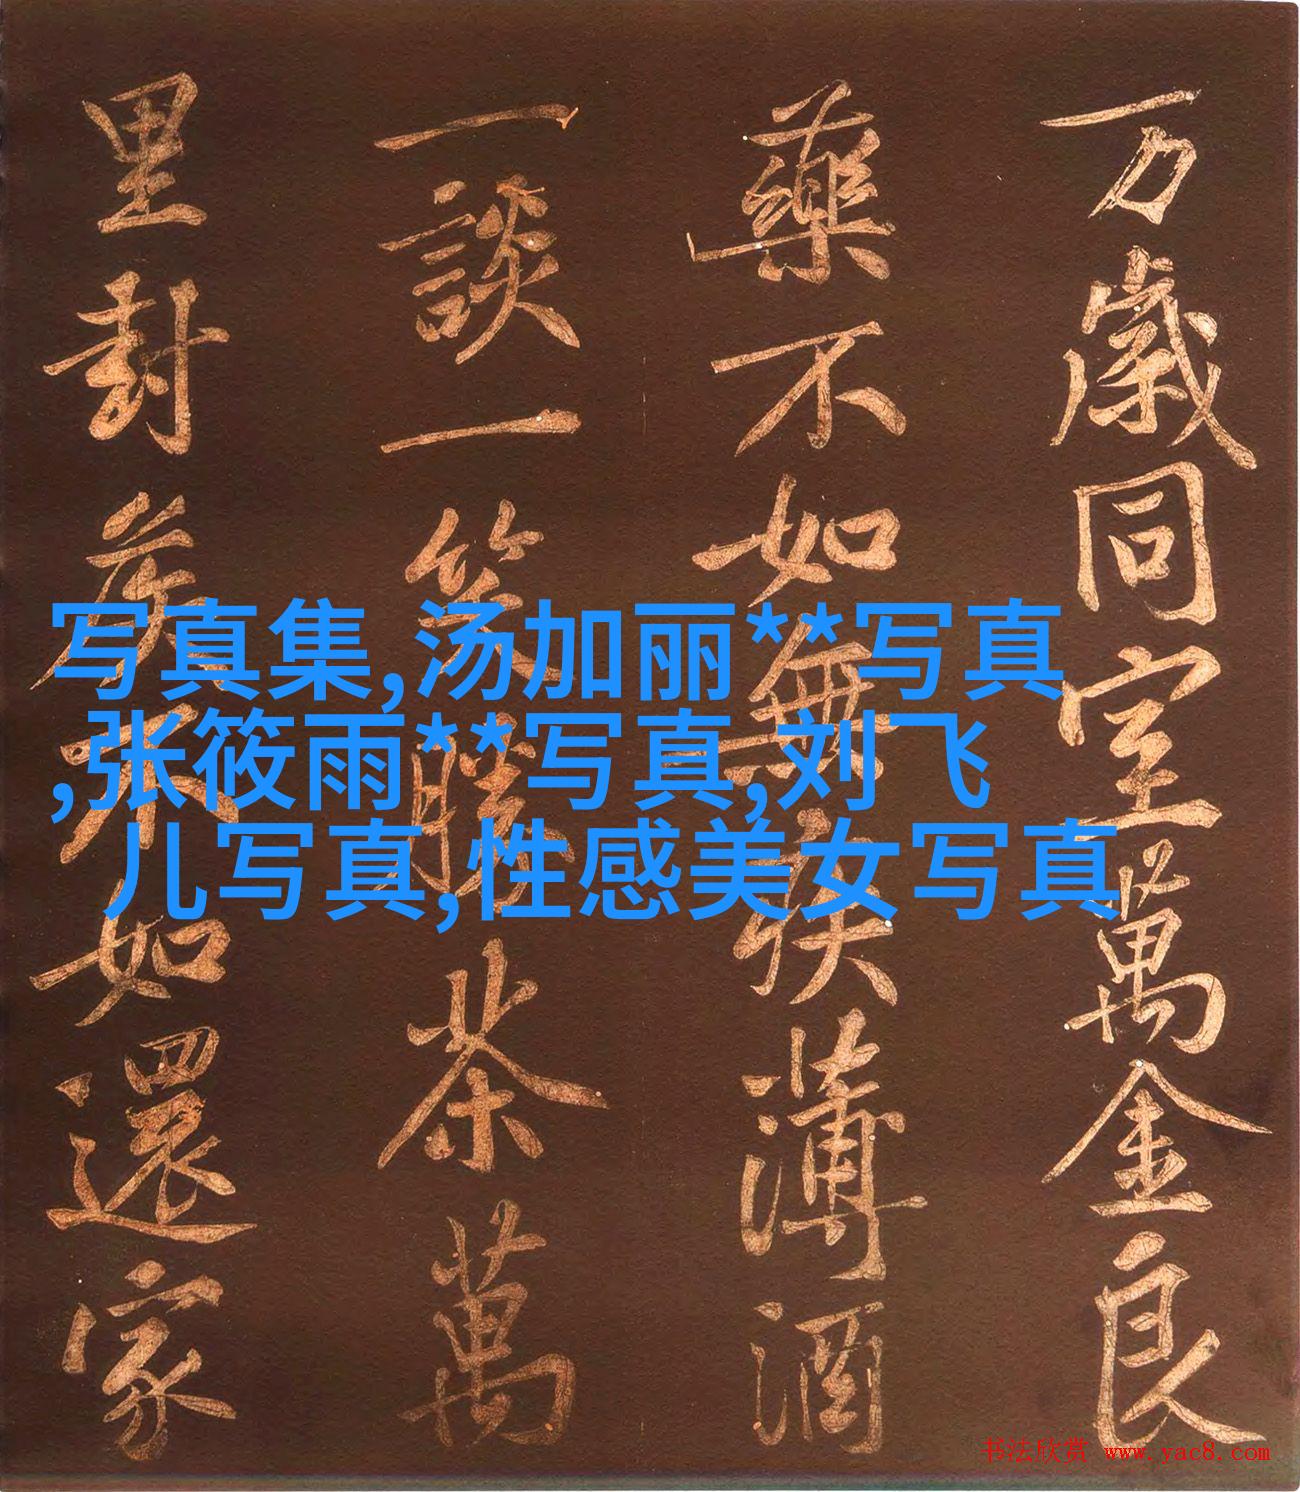 万歲同室萬金良
藥不如無疾薄酒
一談一笑勝茶萬
里封侯不如還家
写真集,汤加丽**写真
,张筱雨**写真,刘飞
儿写真,性感美女写真
书法欣赏 www.yac8.com